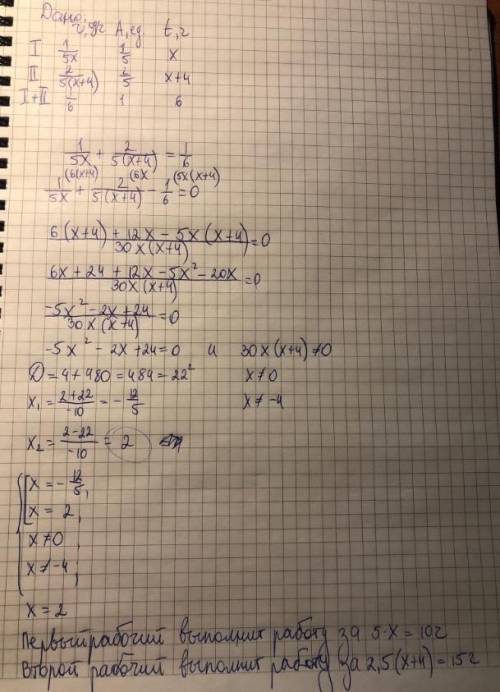 Дано:
v, ед/г A, ед. t, г
I 1/5x 1/5 x
II 2/5(x+4) 2/5 x+4
I+II 1/6 1 6
1/5x + 2/5(x+4) = 1/6
1/5x (6(x+4) + 2/5(x+4) (6x - 1/6 (5x(x+4) = 0
6(x+4) + 12x - 5x(x+4)/30x(x+4) = 0
6x + 24 + 12x - 5x² - 20x/30x(x+4) = 0
-5x² - 2x + 24/30x(x+4) = 0
-5x² - 2x + 24 = 0 и 30x(x+4) ≠ 0
D = 4 + 480 = 484 = 22² x ≠ 0
x₁ = 2+22/-10 = -12/5 x ≠ -4
x₂ = 2-22/-10 = 2
x = -12/5,
x = 2,
x ≠ 0,
x ≠ -4;
x = 2
Первый рабочий выполнит работу за 5·x = 10г
Второй рабочий выполнит работу за 2,5(x+4) = 15г